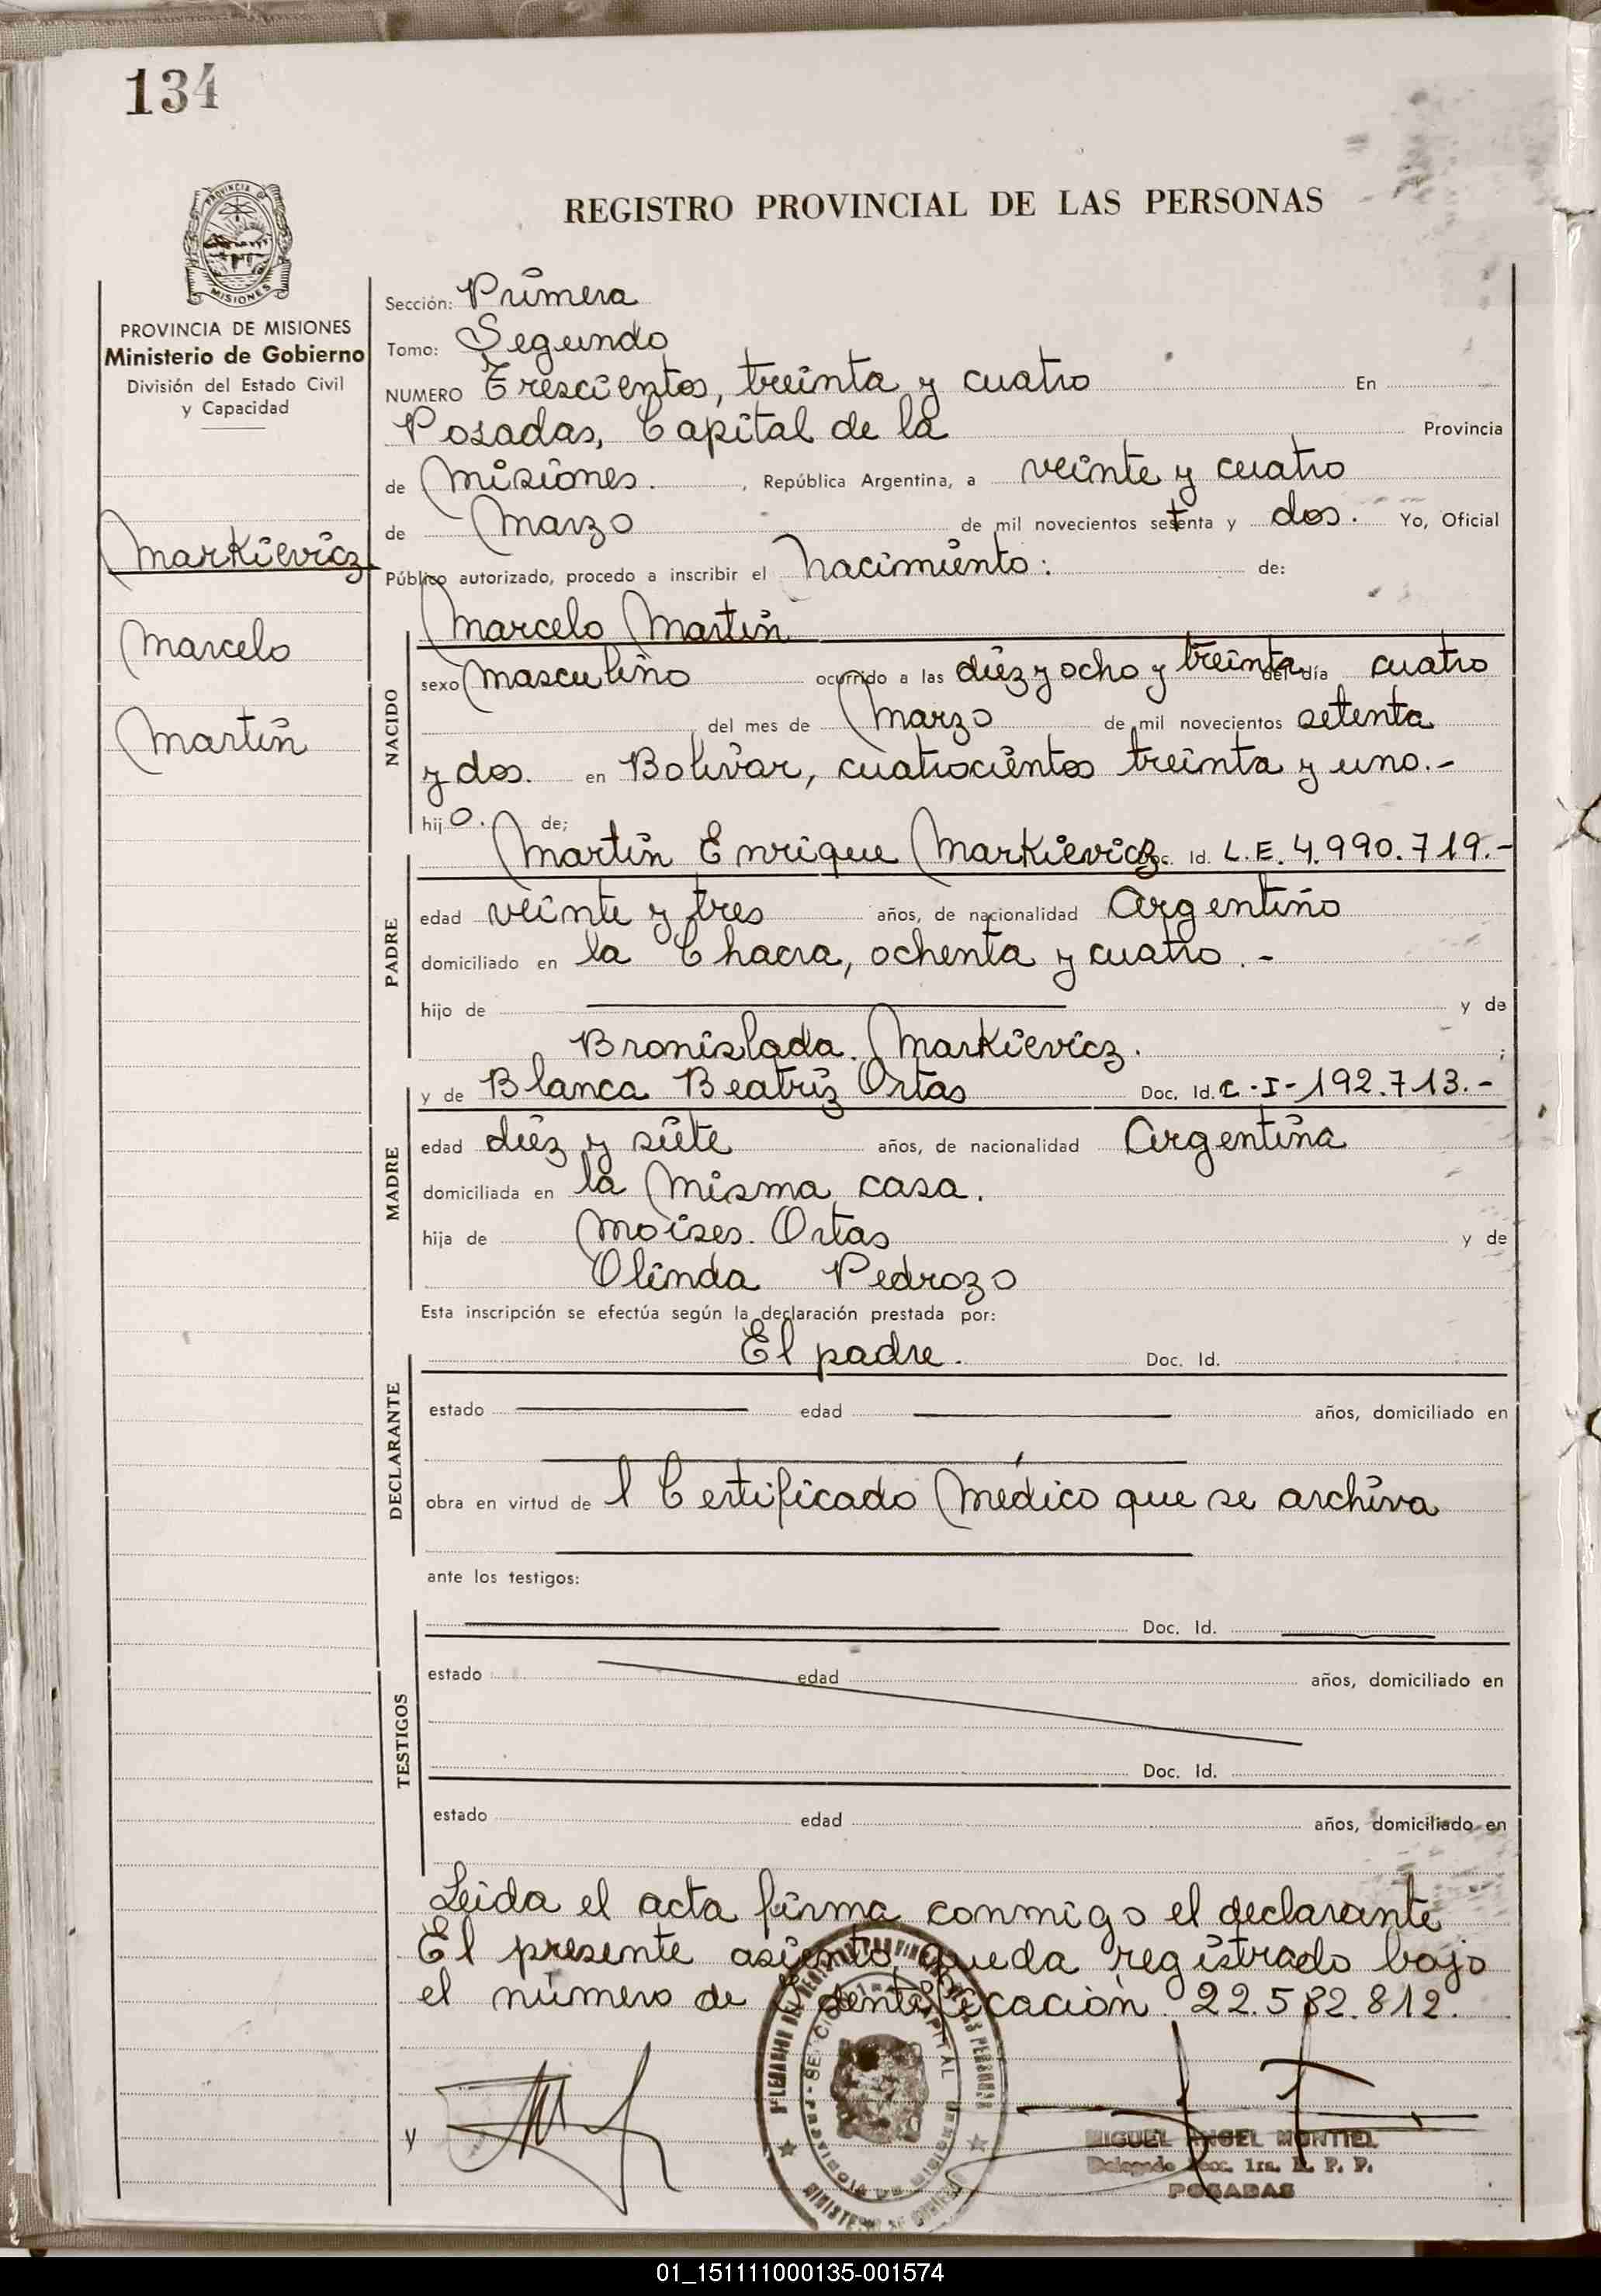 134
PROVINCIA DE
MISIONES
REGISTRO PROVINCIAL DE LAS PERSONAS
PROVINCIA DE MISIONES
Ministerio de Gobierno
División del Estado Civil
y Capacidad
Markievicz
Marcelo
Martin
Sección: Primera
Tomo: Segundo
NUMERO Trescientos, treinta y cuatro En
Posadas, Capital de la Provincia
de Misiones. , República Argentina, a veinte y cuatro
de Marzo de mil novecientos setenta y dos. Yo, Oficial
Público autorizado, procedo a inscribir el nacimiento: de:
Marcelo Martin
NACIDO
sexo Masculino ocurrido a las diez y ocho y treinta del día cuatro
del mes de Marzo de mil novecientos setenta
y dos. en Bolivar, cuatrocientos treinta y uno.-
hijo. de;
Martin Enrique Markievicz Doc. Id. L.E. 4.990.719.-
PADRE
edad veinte y tres años, de nacionalidad Argentino
domiciliado en la Chacra, ochenta y cuatro.-
hijo de y de
Bronislada. Markievicz. ;
y de Blanca Beatriz Ortas Doc. Id. C-I-192.713.-
MADRE
edad diez y siete años, de nacionalidad Argentina
domiciliada en la Misma casa.
hija de Moises. Ortas y de
Olinda Pedrozo
Esta inscripción se efectúa según la declaración prestada por:
El padre. Doc. Id.
DECLARANTE
estado edad años, domiciliado en
obra en virtud de l Certificado Médico que se archiva
ante los testigos:
TESTIGOS
Doc. Id.
estado edad años, domiciliado en
Doc. Id.
estado edad años, domiciliado en
Leida el acta firma conmigo el declarante
El presente asiento queda registrado bajo
el número de Identificación 22.532.812.
MIGUEL ANGEL MONTIEL
Delegado Secc. 1ra. R. P. P.
POSADAS
01_151111000135-001574